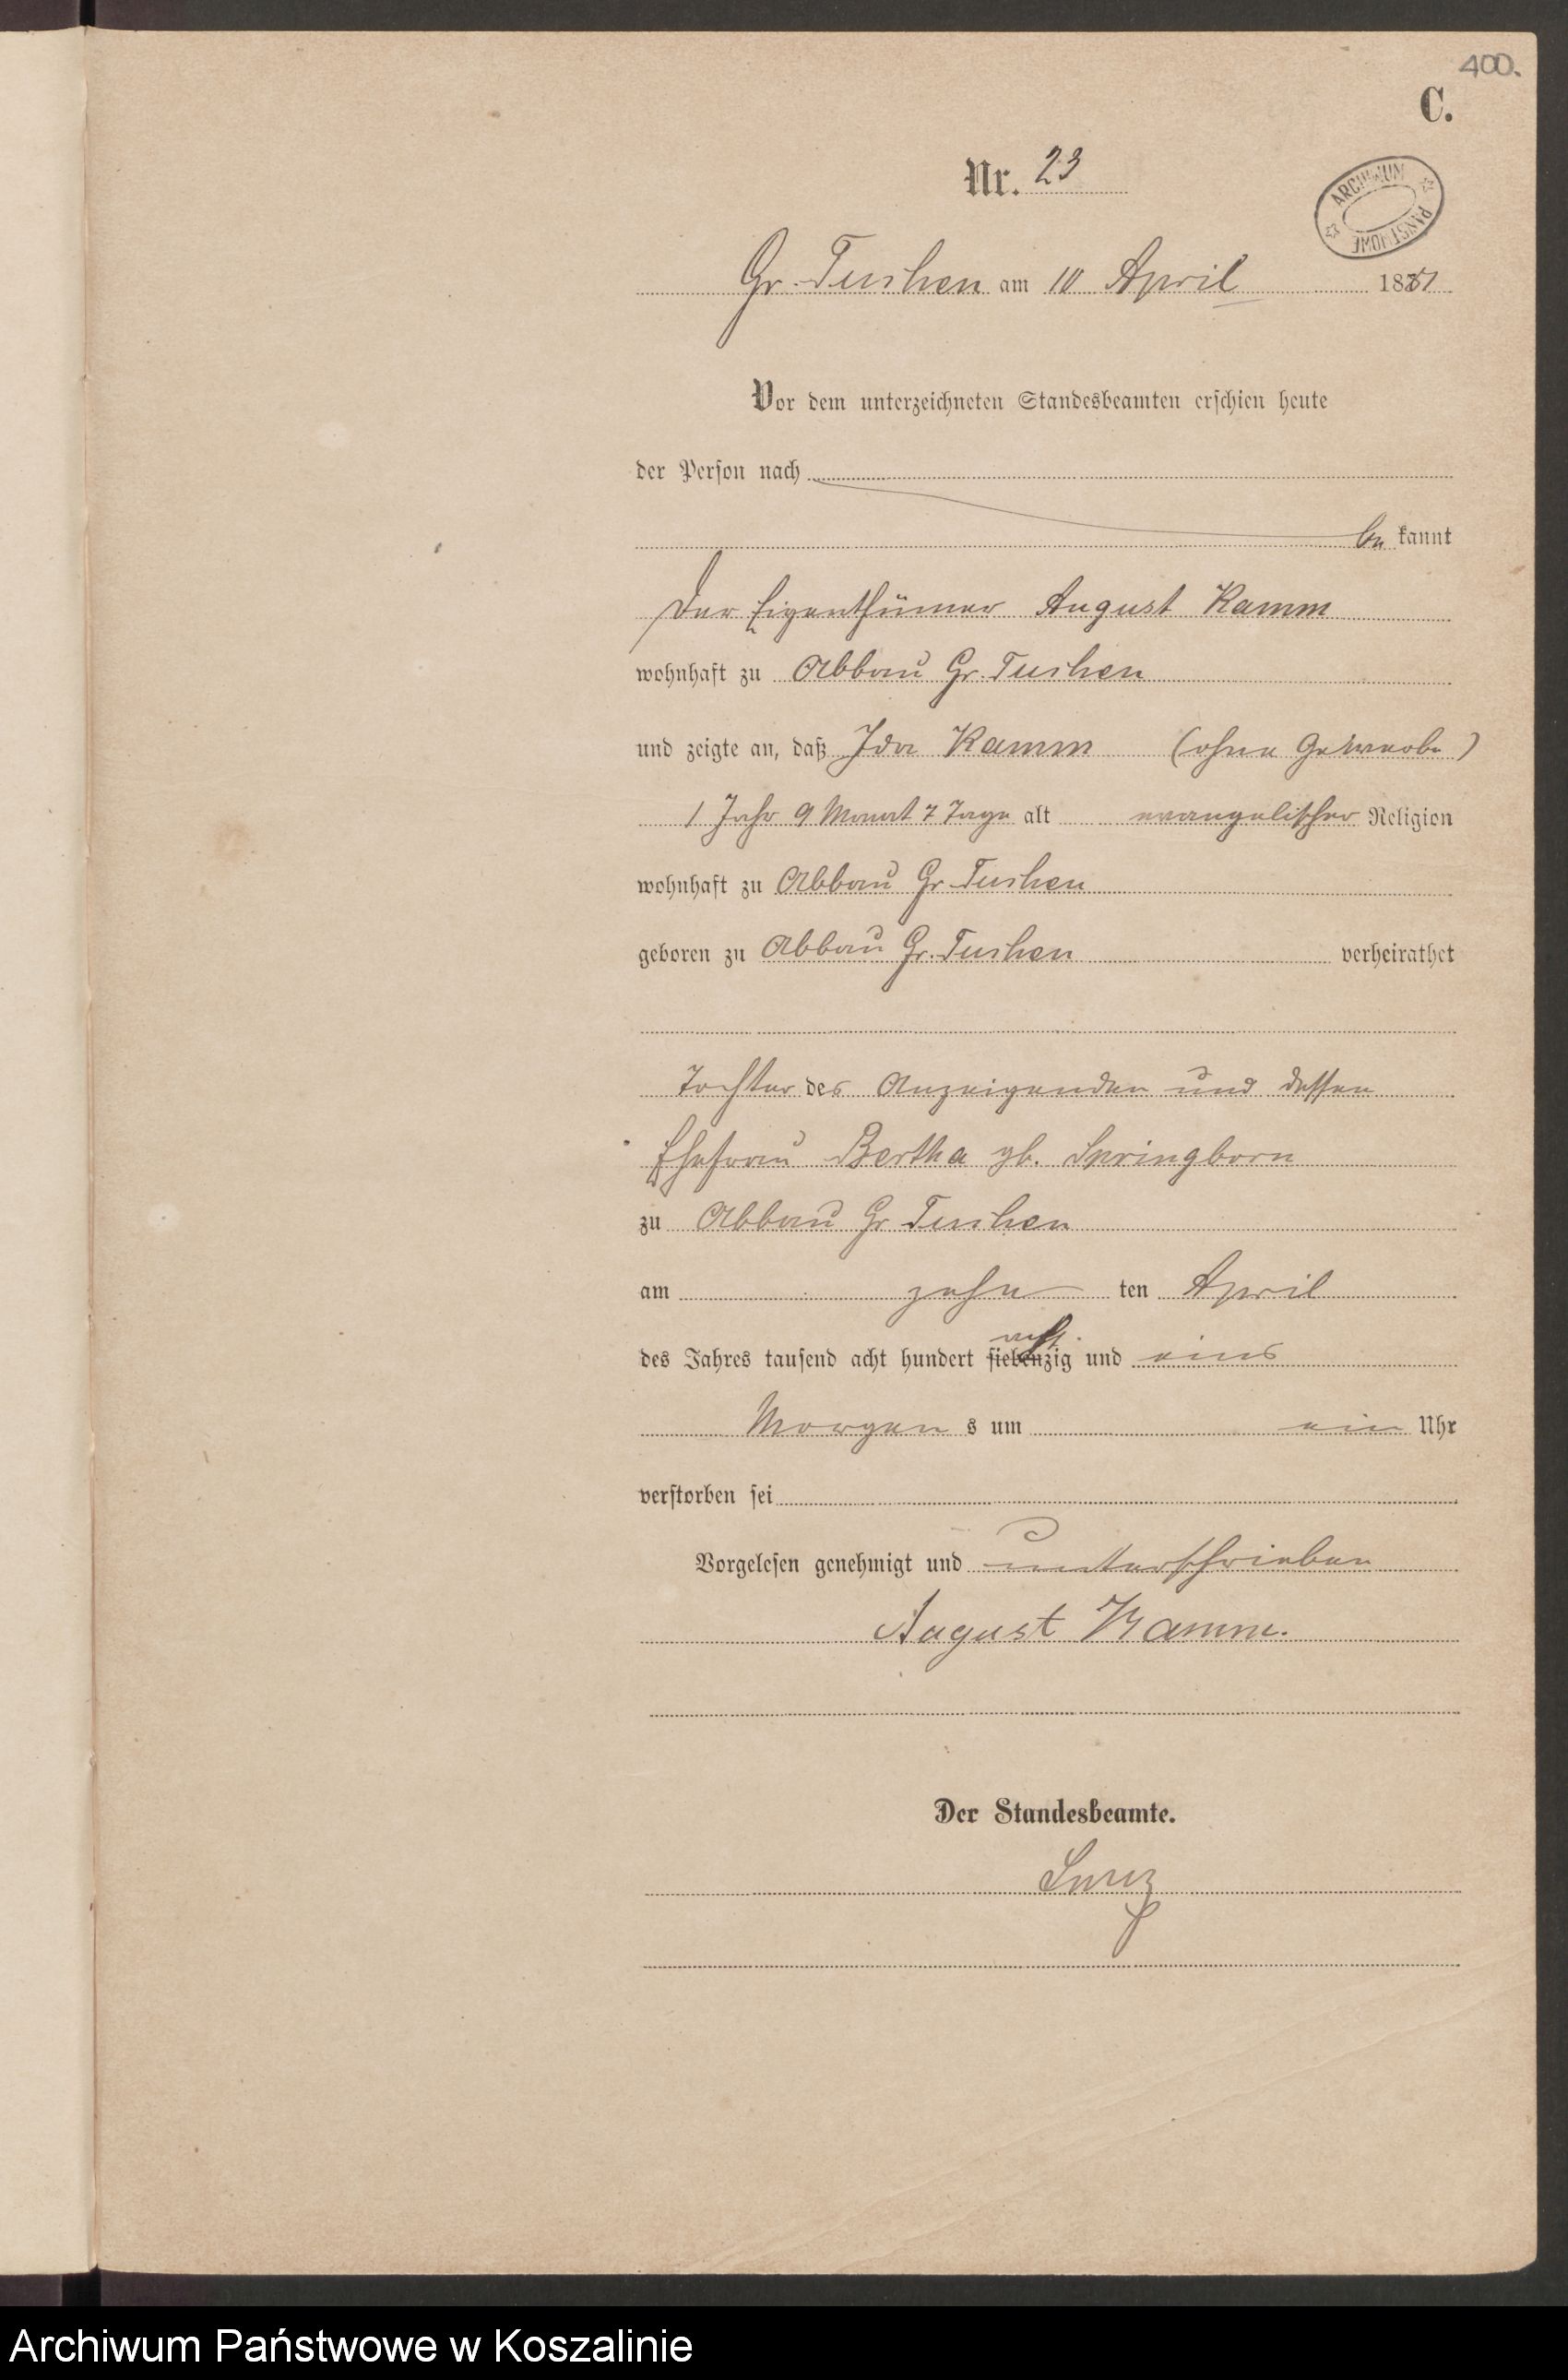 400.
C.
Nr. 23
ARCHIWUM PAŃSTWOWE
Gr. Tuchen am 10 April 1881
Vor dem unterzeichneten Standesbeamten erschien heute
der Person nach
be kannt
Der Eigenthümer August Kamm
wohnhaft zu Abbau Gr. Tuchen
und zeigte an, daß Ida Kamm (ohne Gewerbe)
1 Jahr 9 Monat 7 Tage alt evangelischer Religion
wohnhaft zu Abbau Gr. Tuchen
geboren zu Abbau Gr. Tuchen verheirathet
Tochter des Anzeigenden und dessen
Ehefrau Bertha gb. Springborn
zu Abbau Gr Tuchen
am zehn ten April
acht
des Jahres tausend acht hundert siebenzig und eins
Morgen s um ein Uhr
verstorben sei
Vorgelesen genehmigt und unterschrieben
August Kamm.
Der Standesbeamte.
Archiwum Państwowe w Koszalinie